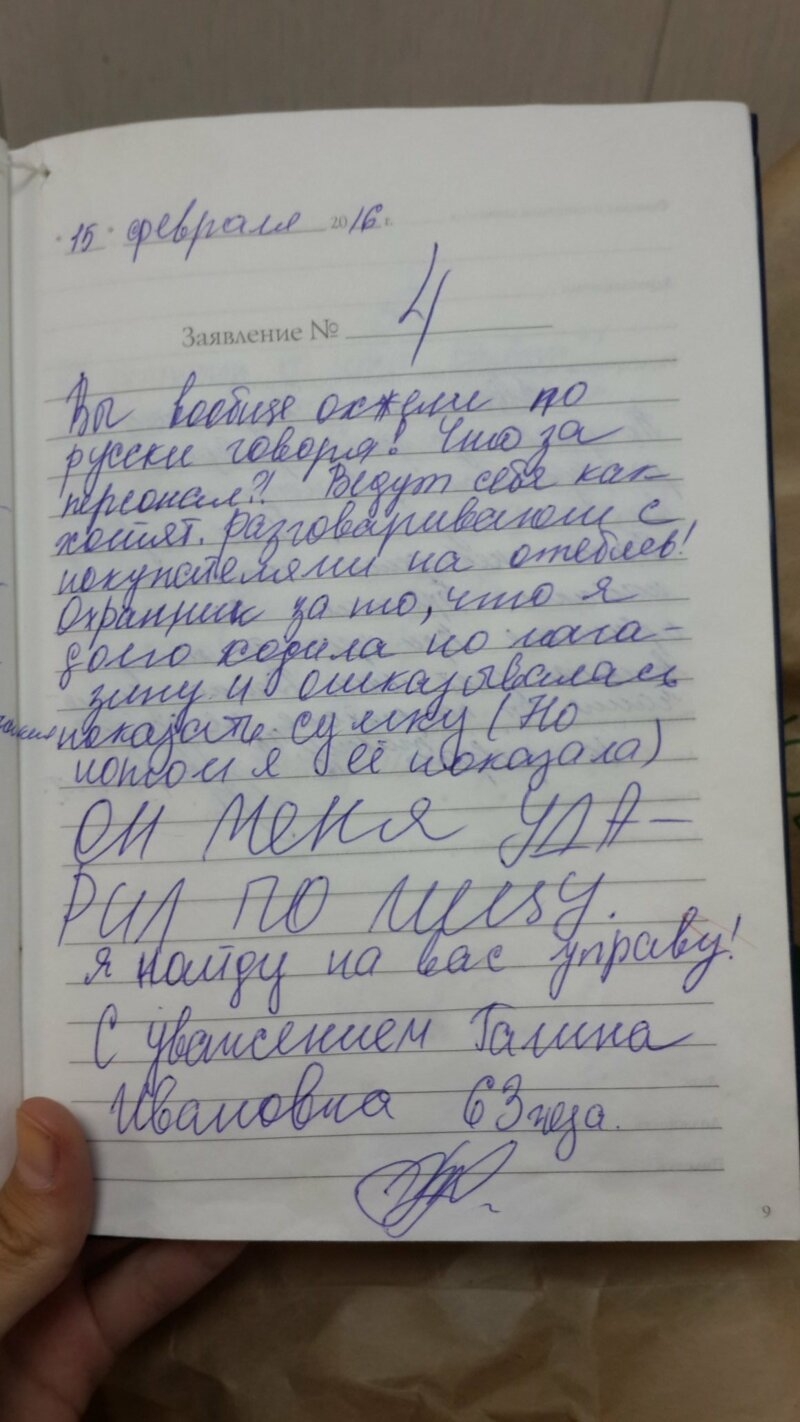 "15" февраля 2016 г.
Заявление № 4
Вы вообще охжели по
русски говоря! Что за
персонал?! Ведут себя как
хотят. Разговаривают с
покупателями на отеблев!
Охранник за то, что я
долго ходила по мага-
зину и отказывалась
показать сумку (Но
потом я её показала)
ОН МЕНЯ УДА-
РИЛ ПО ЛИЦУ.
Я найду на вас управу!
С уважением Галина
Ивановна 63 года.
9